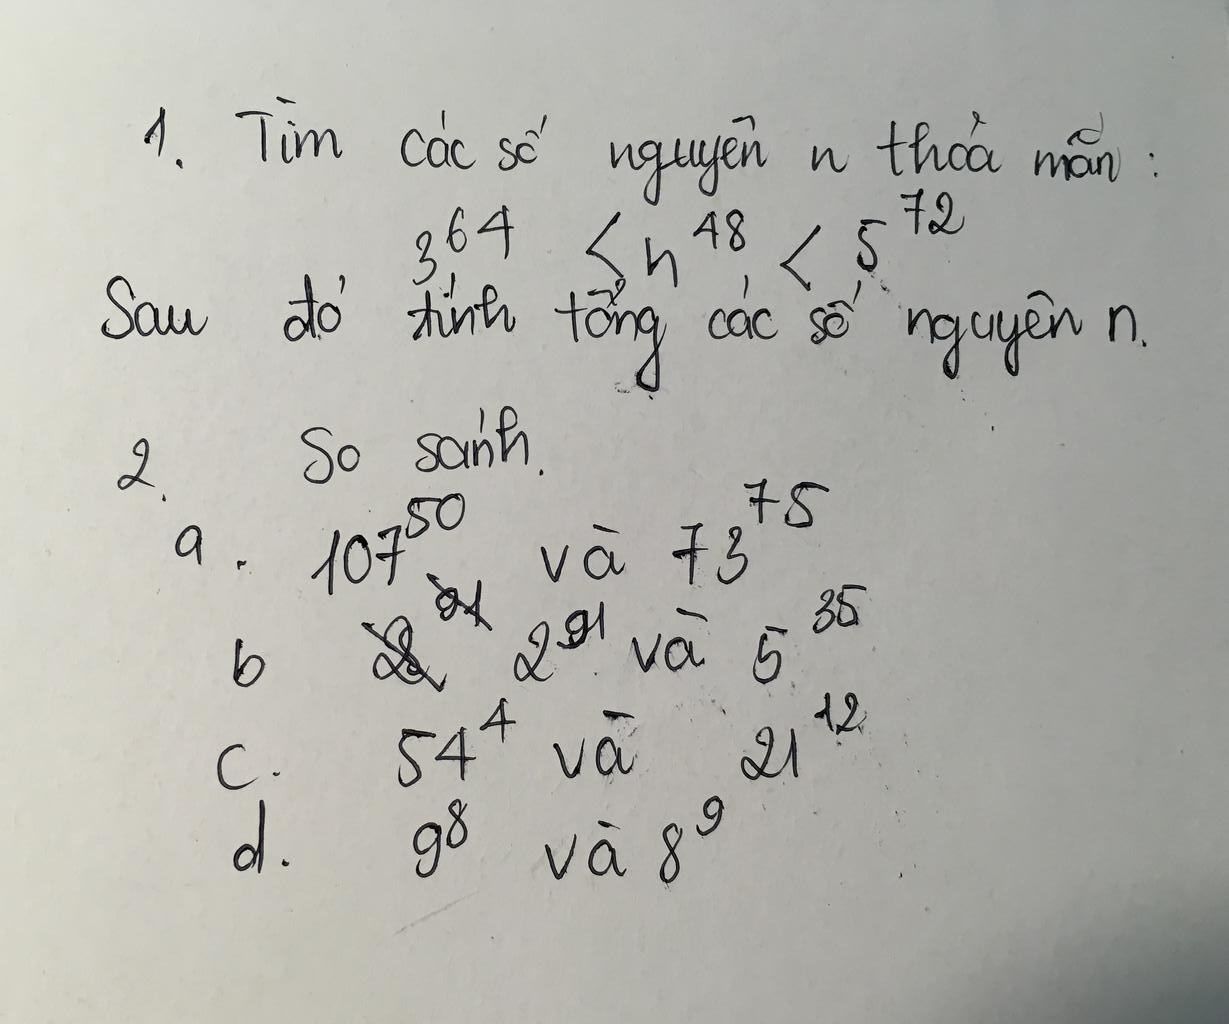 1. Tìm các số nguyên n thỏa mãn :
3^64 < n^48 < 5^72
Sau đó tính tổng các số nguyên n.
2. So sánh.
a. 107^50 và 73^75
b 2^91 và 5^35
c. 54^4 và 21^12
d. 9^8 và 8^9